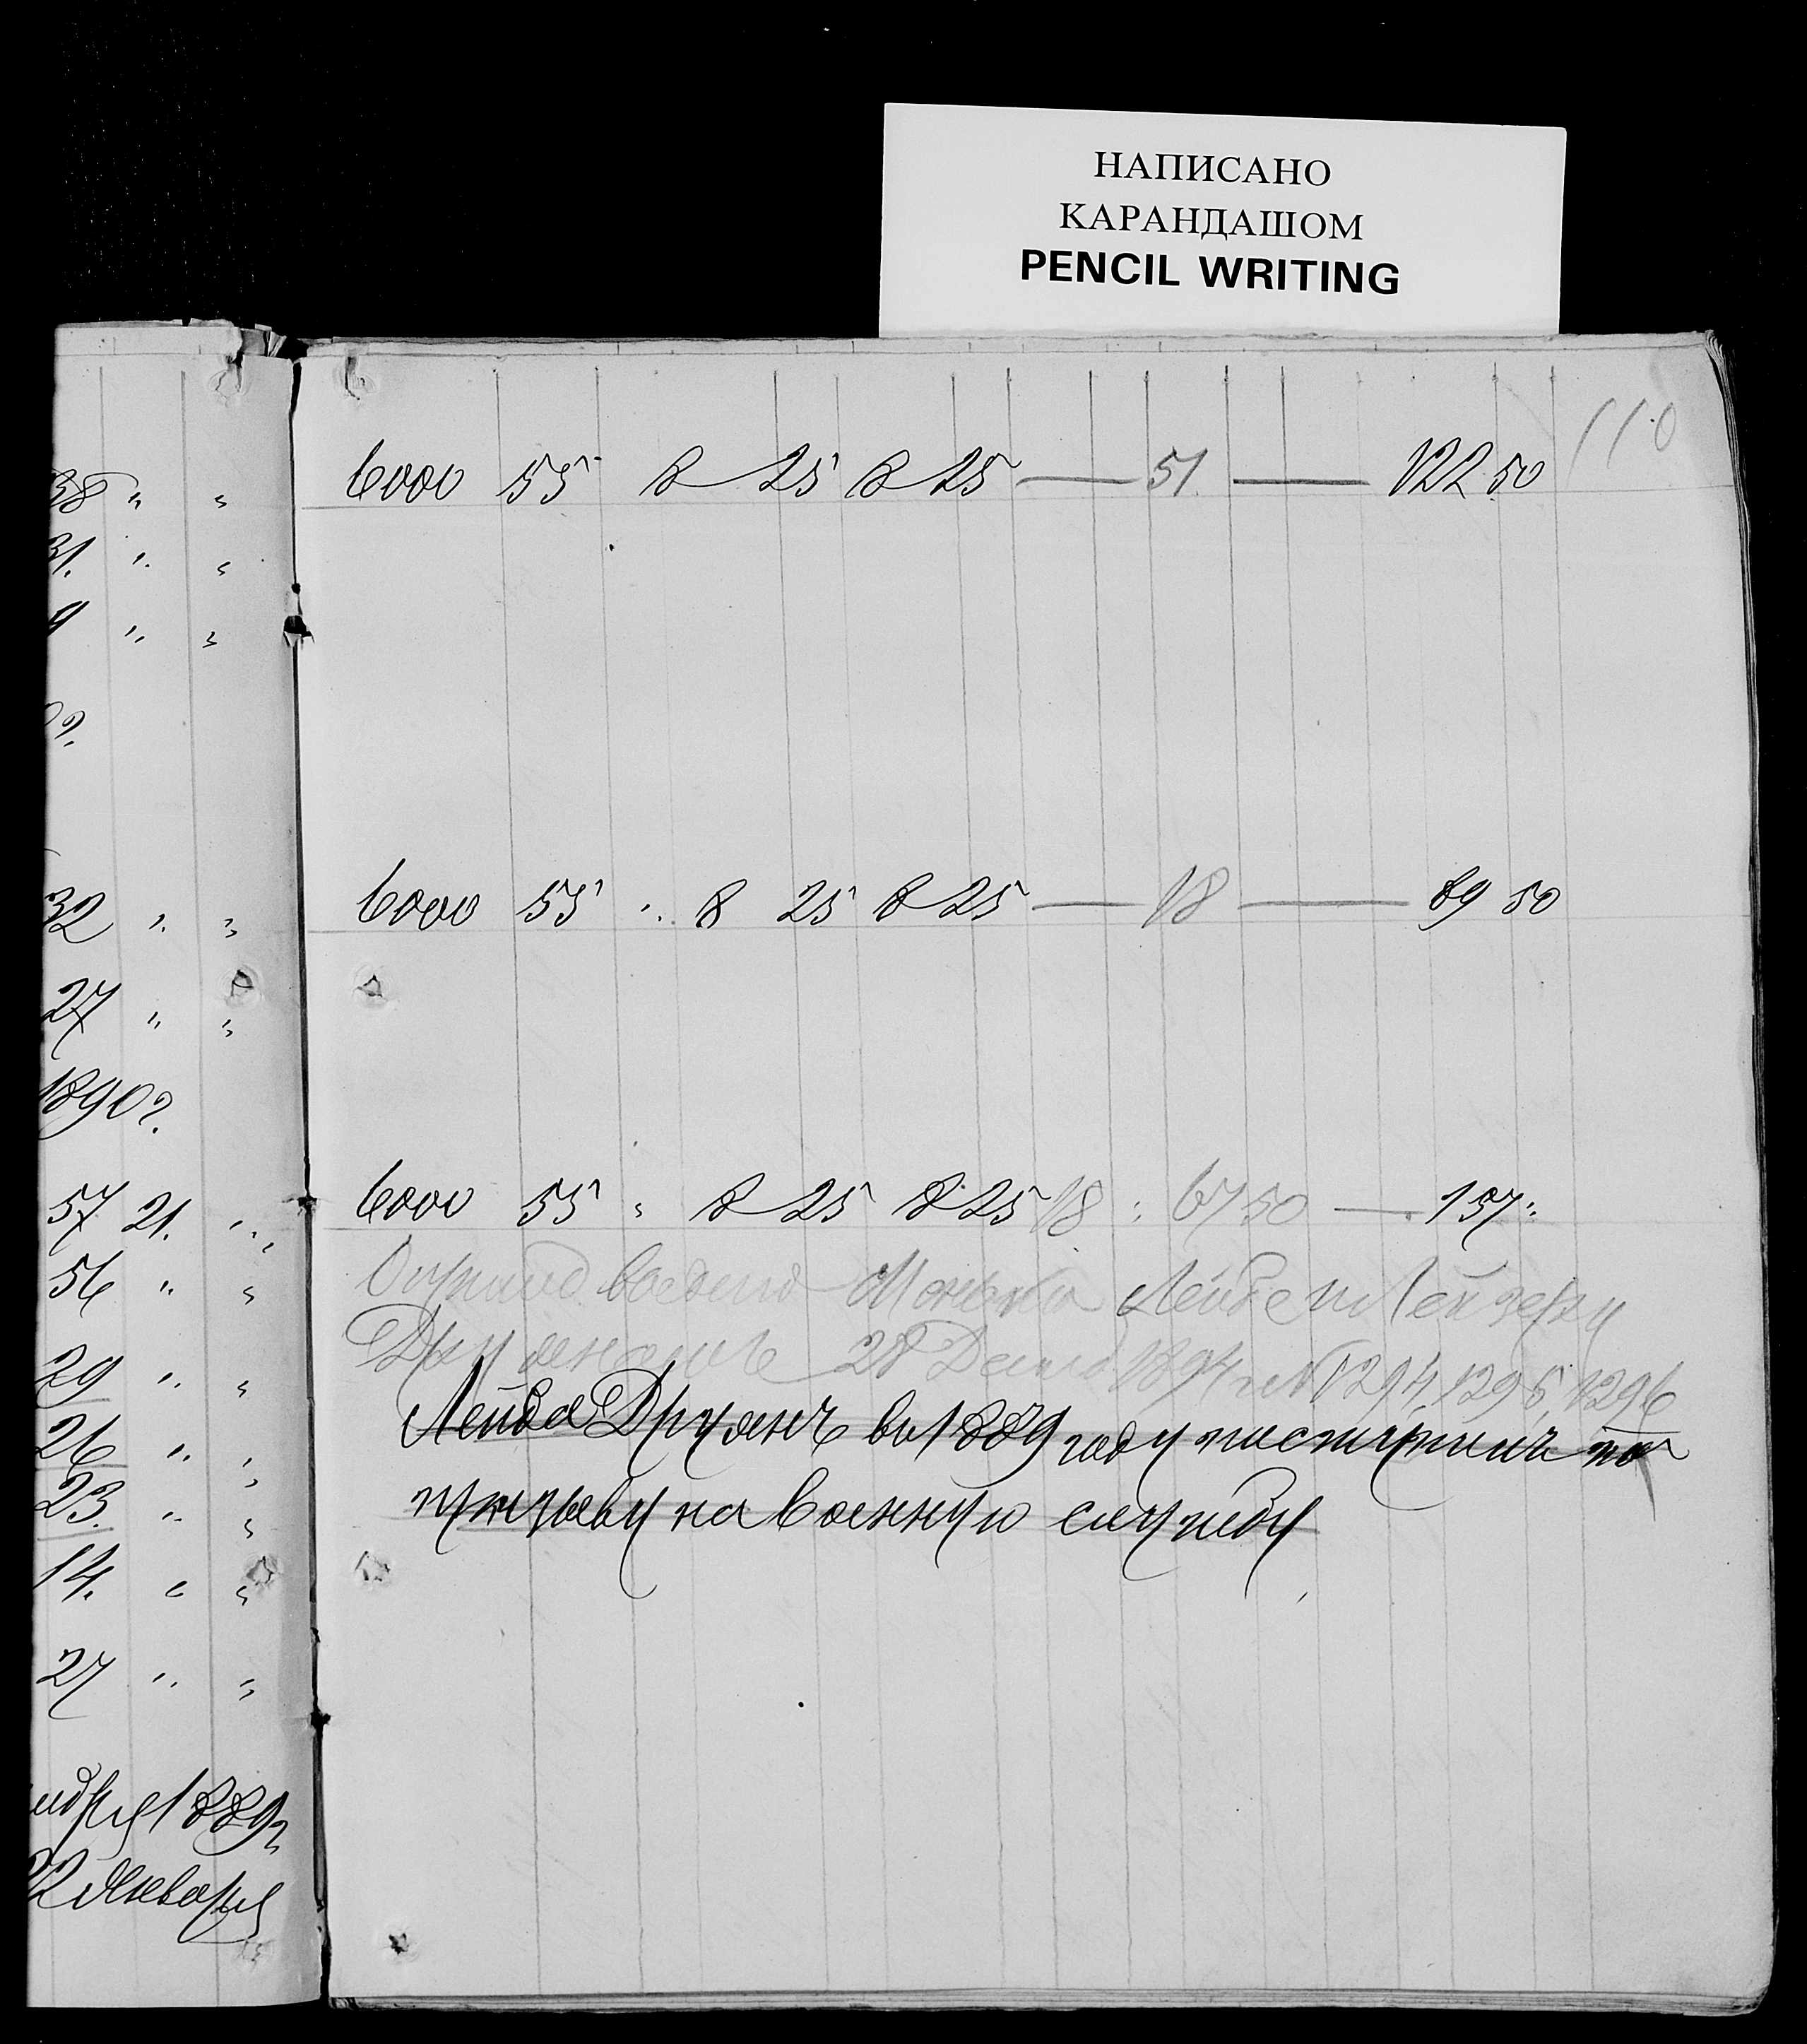 НАПИСАНО
КАРАНДАШОМ
PENCIL WRITING
110
38 " "
6000 55 8 25 8 25 — 51. — 122 50
31. " "
9 " "
32 " "
6000 55 " 8 25 8 25 — 18 — 89 50
27 " "
1890 г.
57 21. " "
6000 55 " 8 25 8 25 18 : 67 50 — 157 "
56 " "
Лейзеру
29 " "
28 1894 г. № 1294, 1295, 1296
Лейба Друянъ въ 1889 году поступилъ по
26 " "
призыву на военную службу
23. " "
14. " "
27 " "
1889 г.
22 Января